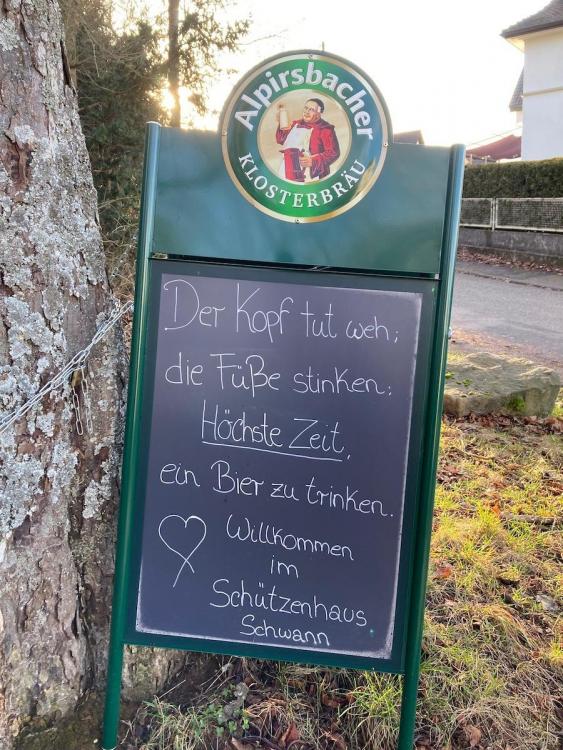 Alpirsbacher
KLOSTERBRÄU
Der Kopf tut weh;
die Füße stinken;
Höchste Zeit,
ein Bier zu trinken.
Willkommen
im
Schützenhaus
Schwann